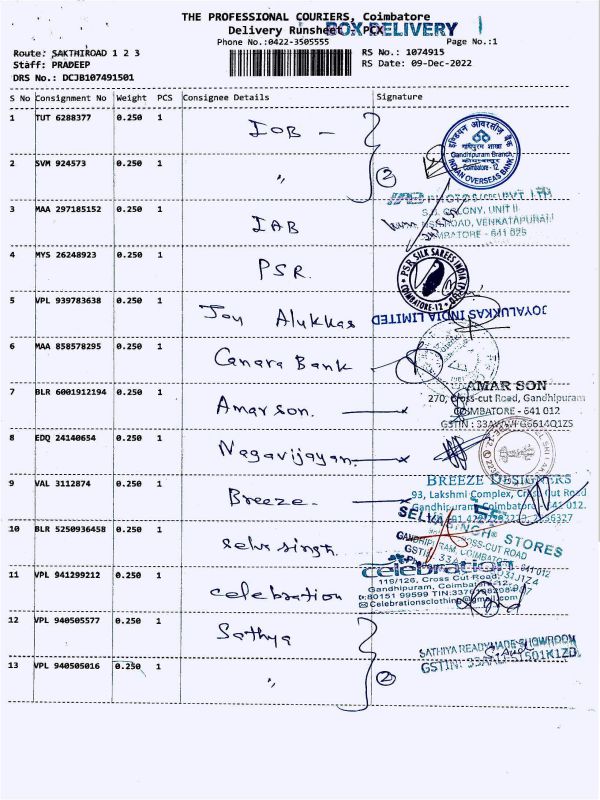 THE PROFESSIONAL COURIERS, Coimbatore
Delivery Runsheet - PCX
BOX DELIVERY
Phone No.:0422-3505555
Page No.:1
Route: SAKTHIROAD 1 2 3
RS No.: 1074915
Staff: PRADEEP
RS Date: 09-Dec-2022
DRS No.: DCJB107491501
S No Consignment No Weight PCS Consignee Details Signature
1 TUT 6288377 0.250 1 IOB -
इण्डियन ओवरसीज़ बैंक
Gandhipuram Branch,
Coimbatore - 12
INDIAN OVERSEAS BANK
2 SVM 924573 0.250 1 "
2
3 MAA 297185152 0.250 1 IAB
PVT LTD
S.S. COLONY, UNIT II
ROAD, VENKATAPURAM
COIMBATORE - 641 025
4 MYS 26248923 0.250 1 PSR.
PSR SILK SAREES INDIA
COIMBATORE-12
5 VPL 939783638 0.250 1 Joy Alukkas
JOYALUKKAS INDIA LIMITED
6 MAA 858578295 0.250 1 Canara Bank
7 BLR 6001912194 0.250 1 Amarson.
AMAR SON
270, Cross-cut Road, Gandhipuram
COIMBATORE - 641 012
8 EDQ 24140654 0.250 1 Nagavijayan
9 VAL 3112874 0.250 1 Breeze.
BREEZE DESIGNERS
93, Lakshmi Complex, Cross Cut Road
Gandhipuram, Coimbatore - 641 012.
10 BLR 5250936458 0.250 1 selva singh.
SELVA SINGH STORES
CROSS-CUT ROAD
GANDHIPURAM, COIMBATORE - 641 012
11 VPL 941299212 0.250 1 celebration
celebration
119/126, Cross Cut Road,
Gandhipuram, Coimbatore-12.
80151 99599
Celebrationsclothing@gmail.com
12 VPL 940505577 0.250 1 Sathya
SATHIYA READYMADE SHOWROOM
13 VPL 940505016 0.250 1 "
2